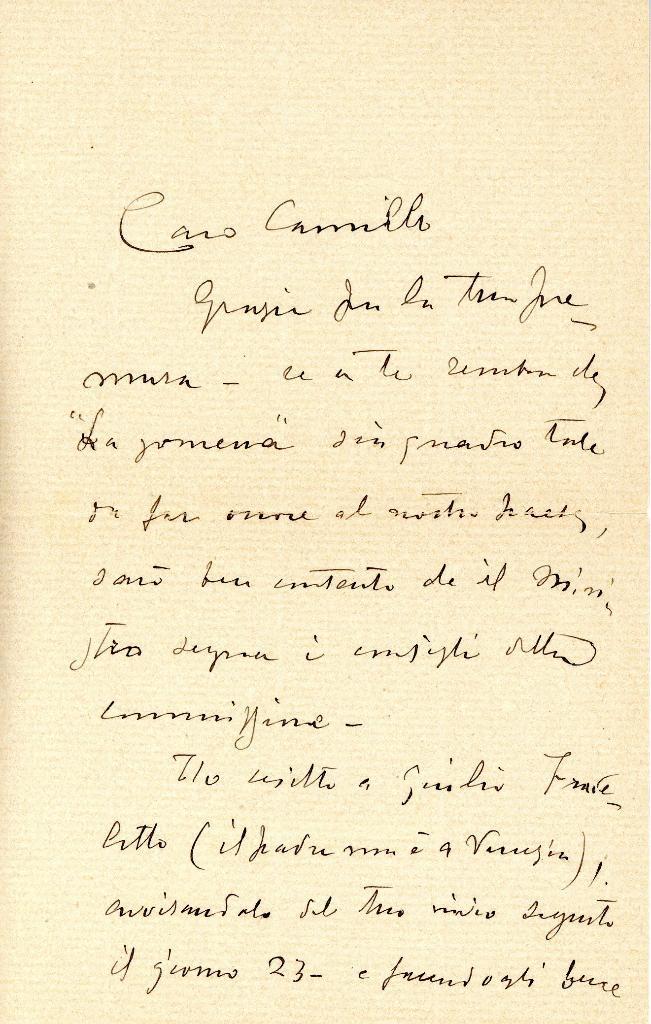 Caro Camillo
Grazie per la tua pre-
mura - se a te sembra che
"La gomena" sia quadro tale
da far onore al nostro paese,
sarò ben contento che il Mini-
stro segua i consigli della
commissione -
Ho scritto a Giulio Frade-
letto (il padre non è a Venezia),
avvisandolo del tuo invio seguito
il giorno 23 - e facendogli bene